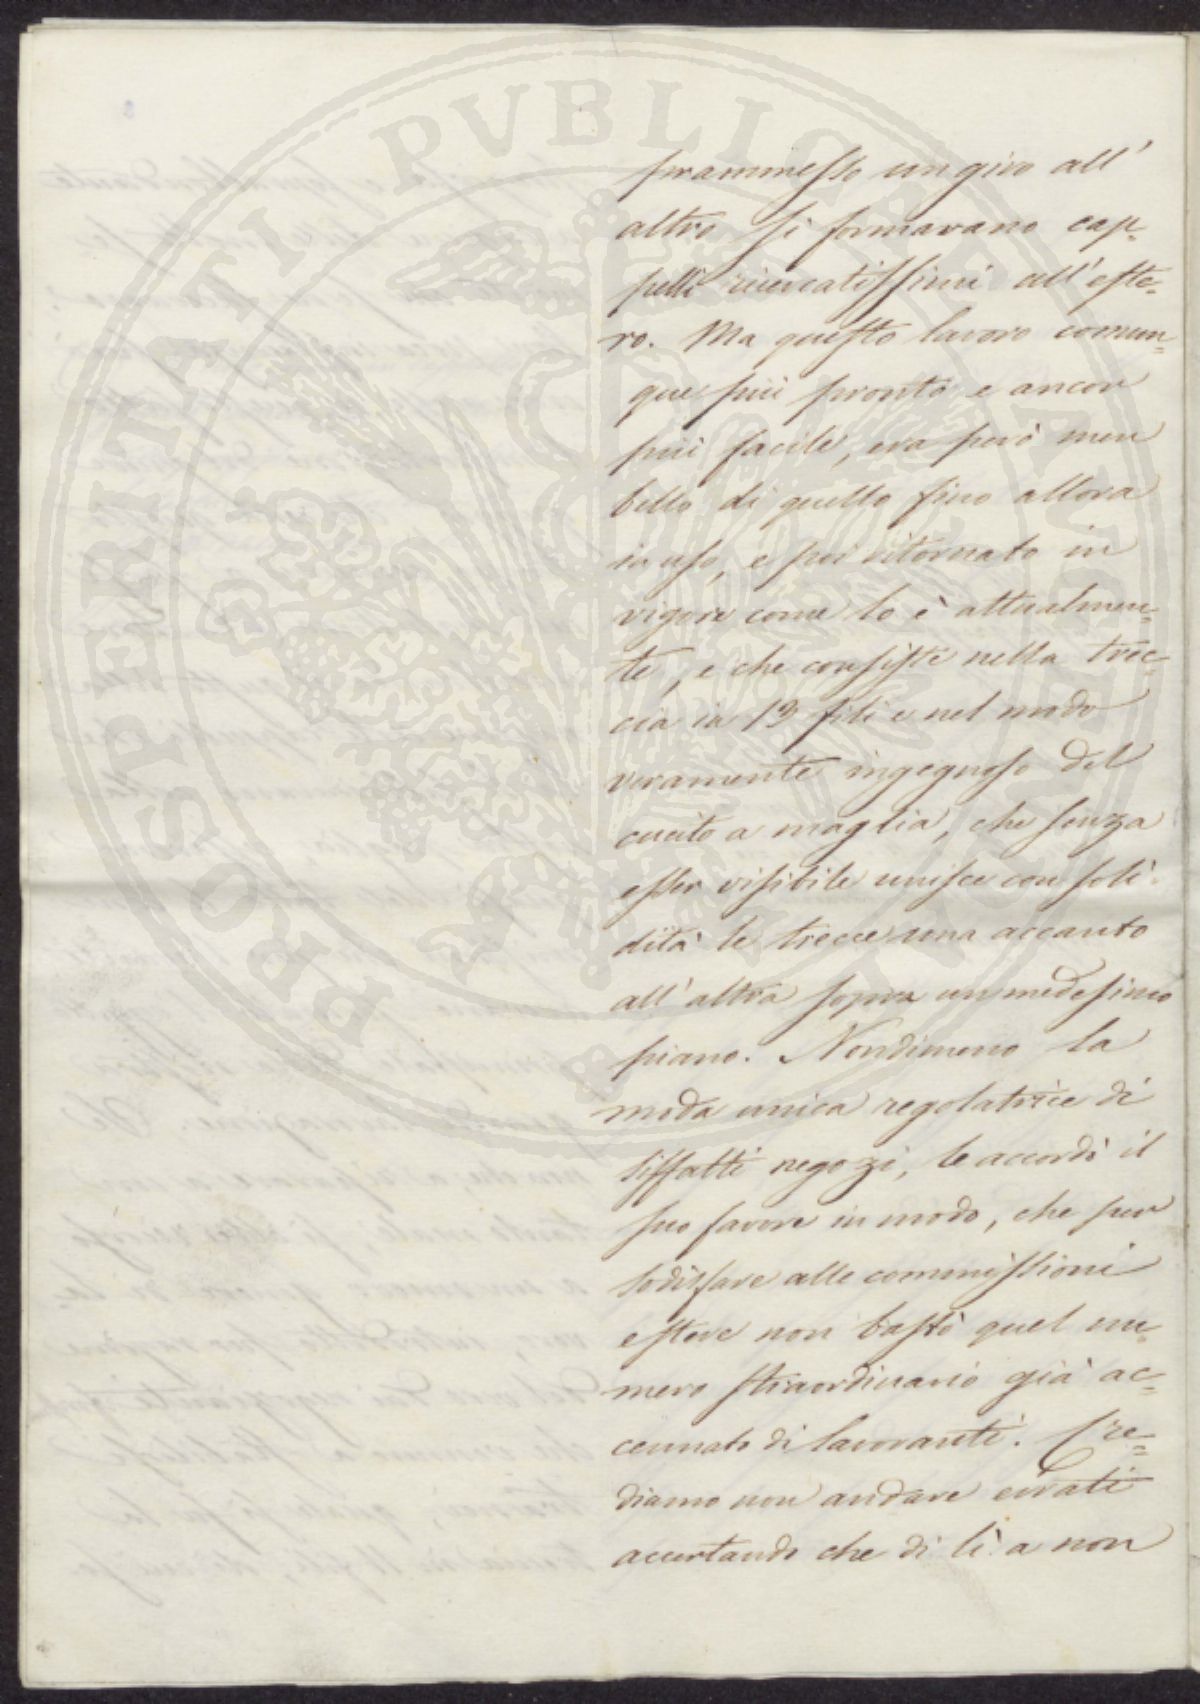 prammesso un giro all'
altro si formavano cap-
pelli ricercatissimi all'este-
ro. Ma questo lavoro comun-
que più pronto e ancor
più facile, era però men
bello di quello fino allora
in uso, e poi ritornato in
vigore come lo è attualmen-
te, e che consiste nella trec-
cia in 13 fili e nel modo
veramente ingegnoso del
cucito a maglia, che senza
esser visibile unisce con soli-
dità le trecce una accanto
all'altra sopra un medesimo
piano. Nondimeno la
moda unica regolatrice di
siffatti negozi, le accordò il
suo favore in modo, che per
sodisfare alle commissioni
estere non bastò quel nu-
mero straordinario già ac-
cennato di lavoranti. Cre-
diamo non andare errati
accertando che di lì a non
PROSPERITATI PVBLICAE AVGENDAE